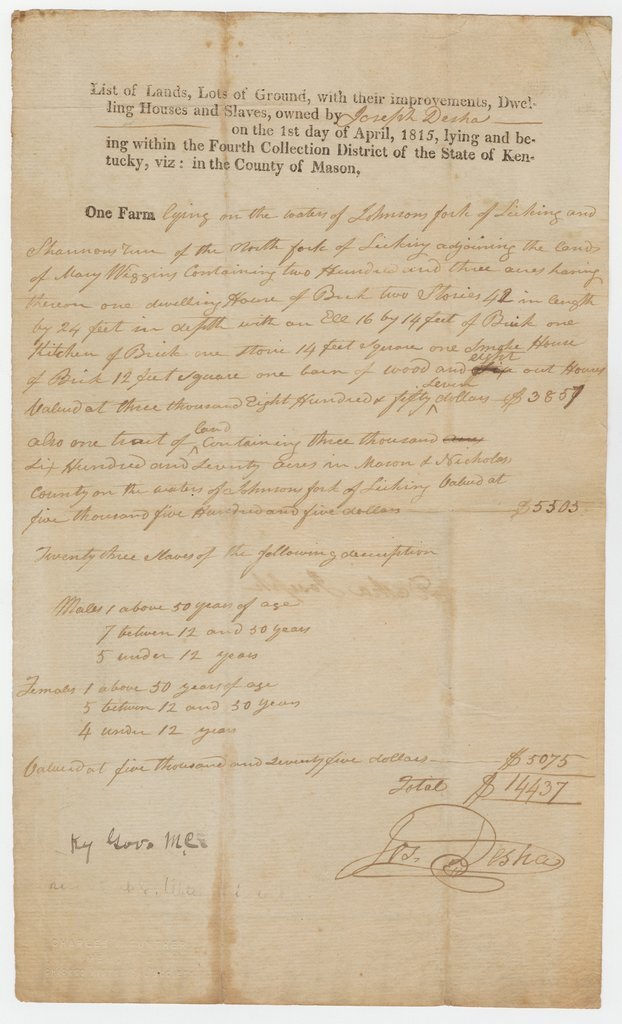 List of Lands, Lots of Ground, with their improvements, Dwel-
ling Houses and Slaves, owned by Joseph Desha
on the 1st day of April, 1815, lying and be-
ing within the Fourth Collection District of the State of Ken-
tucky, viz: in the County of Mason,
One Farm lying on the waters of Johnsons fork of Licking and
Shannons run of the North fork of Licking adjoining the lands
of Mary Wiggins Containing two Hundred and three acres having
thereon one dwelling House of Brick two Stories 42 in length
by 24 feet in depth with an Ell 16 by 14 feet of Brick one
Kitchen of Brick one storie 14 feet square one Smoke House
of Brick 12 feet square one barn of wood and eight out Houses
Valued at three thousand Eight Hundred & fifty seven dollars $3857
also one tract of land Containing three thousand
Six Hundred and Seventy acres in Mason & Nicholas
County on the waters of Johnsons fork of Licking Valued at
five thousand five Hundred and five dollars $5505
Twenty three Slaves of the following description
Males 1 above 50 years of age
7 between 12 and 50 years
5 under 12 years
Females 1 above 50 years of age
5 between 12 and 50 years
4 under 12 years
Valued at five thousand and Seventy five dollars $5075
Total $14437
Jos. Desha
Ky Gov. M.C.